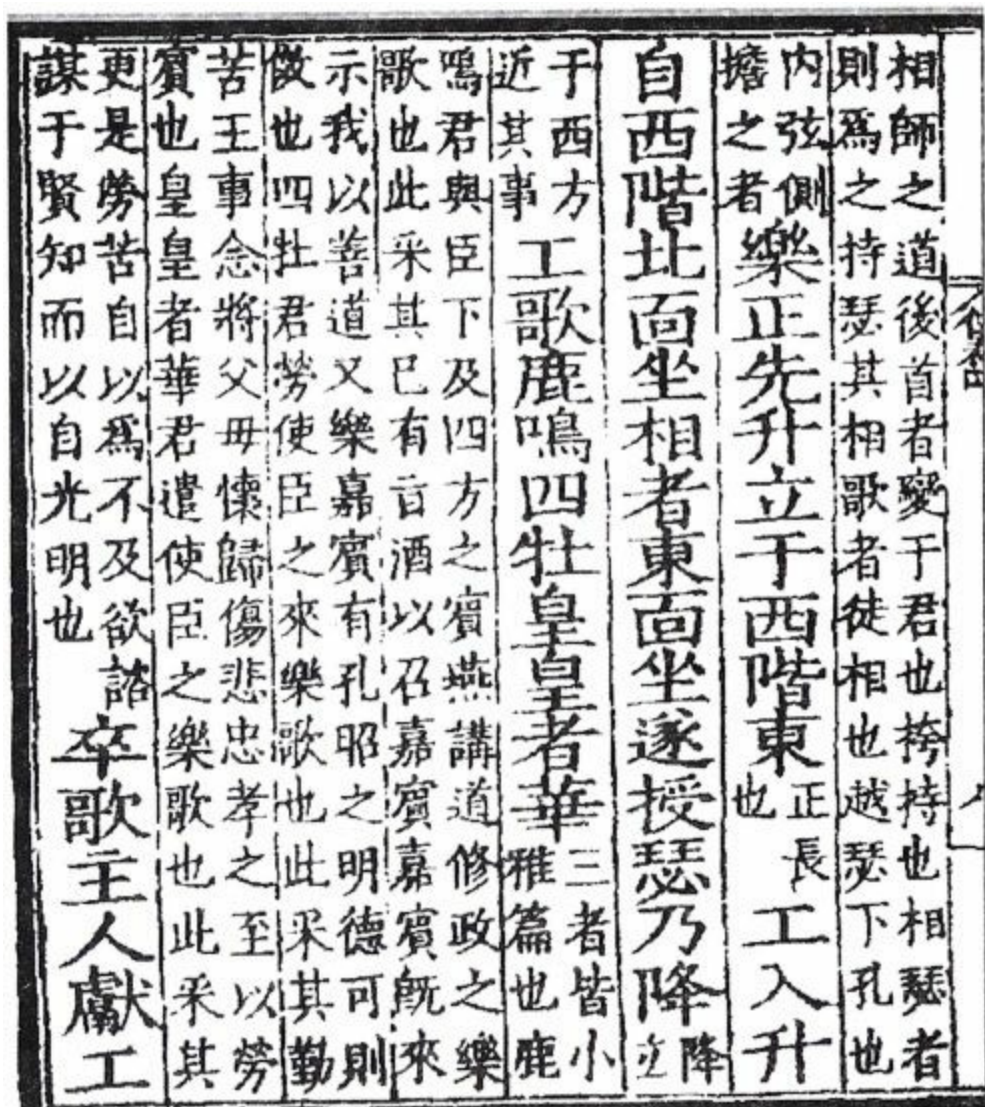 相師之道後首者變于君也挎持也相瑟者
則爲之持瑟其相歌者徒相也越瑟下孔也
内弦側
擔之者
樂正先升立于西階東
正長
也
工入升
自西階北面坐相者東面坐遂授瑟乃降
降
立
于西方
近其事
工歌鹿鳴四牡皇皇者華
三者皆小
雅篇也鹿
鳴君與臣下及四方之賓燕講道修政之樂
歌也此采其已有旨酒以召嘉賓嘉賓旣來
示我以善道又樂嘉賓有孔昭之明德可則
傚也四牡君勞使臣之來樂歌也此采其勤
苦王事念將父毋懷歸傷悲忠孝之至以勞
賓也皇皇者華君遣使臣之樂歌也此采其
更是勞苦自以爲不及欲諮
謀于賢知而以自光明也
卒歌主人獻工